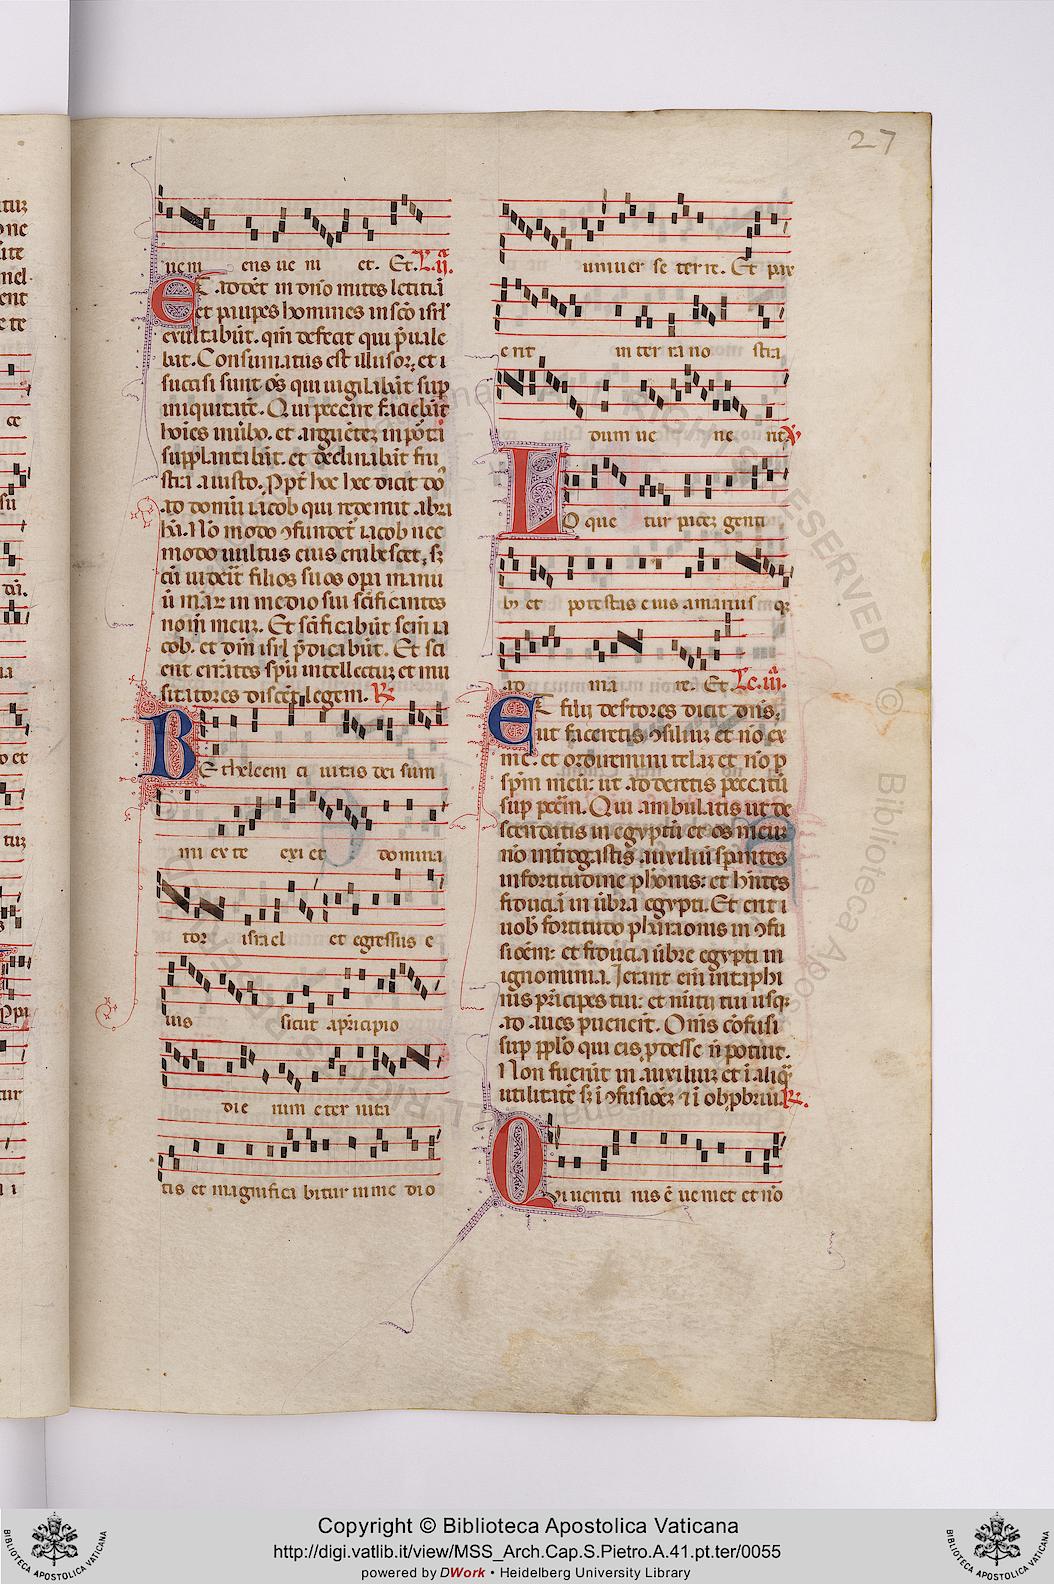 27
uem ens ue ni et. Et. L. ii.
ET adde͂t in dn̄o mites letitiā
et paup̲es homines in sc̄o isrl̄
exultabūt. qm̄ defecit qui p̄uale
bat. Consumatus est illusor. et
succisi sunt oēs qui uigilabāt sup
iniquitatē. Qui peccare faciebāt
hoīes in uerbo. et arguētez in porta
supplantabāt. et declinabāt fru
stra a iusto. Ppt̄ hoc hec dicit do
ad domū iacob qui redemit abra
hā. Nō modo ꝯfundet̄ iacob nec
modo uultus eius erubescet. sꝫ
cū uiderit filios suos opa manu
ū mearꝫ in medio sui sc̄ificantes
nom̄ meuꝫ. Et sc̄ificabūt sc̄m ia
cob. et dm̄ isrl̄ p̄dicabūt. Et sci
ent errātes spū intellectuꝫ et mu
sitatores discēt legem. ℟
BEthleem ci uitas dei sum
mi ex te exi et domina
tor israel et egressus e
ius sicut a pͥncipio
die rum eter nita
tis et magnifica bitur in me dio
uniuer se terre. Et pax
erit in ter ra no stra
dum ue ne rit ℣
LO que tur paceꝫ genti
bꝫ et potestas eius a mari usqꝫ
ad ma re. Et Lc. iii.
UE filij destores dicit dn̄s.
ut faceretis ꝯsiliuꝫ et nō ex
me. et ordiremini telaꝫ et nō p
spm̄ meū. ut adderetis peccatū
sup pctm̄. Qui ambulatis ut de
scendatis in egyptū et os meuꝫ
nō interrogastis auxiliū sperantes
in fortitudine pharaonis: et hn̄tes
fiduciā in umbra egypti. Et erit
uob̄ fortitudo pharaonis in ꝯfu
sioēm: et fiducia umbre egypti in
ignominiā. Erant eni in taphi
nis pͥncipes tui: et nuntij tui usqꝫ
ad anes puenert. Om̄s cōfusi
sup pplō qui eis pdesse nō potuit.
Non fuerūt in auxiliuꝫ et ī aliqͣ
utilitatē sꝫ ī ꝯfusioēꝫ ⁊ ī obpbriū. ℟.
QUi uentu rus ē ueniet et nō
Copyright © Biblioteca Apostolica Vaticana
http://digi.vatlib.it/view/MSS_Arch.Cap.S.Pietro.A.41.pt.ter/0055
powered by DWork • Heidelberg University Library